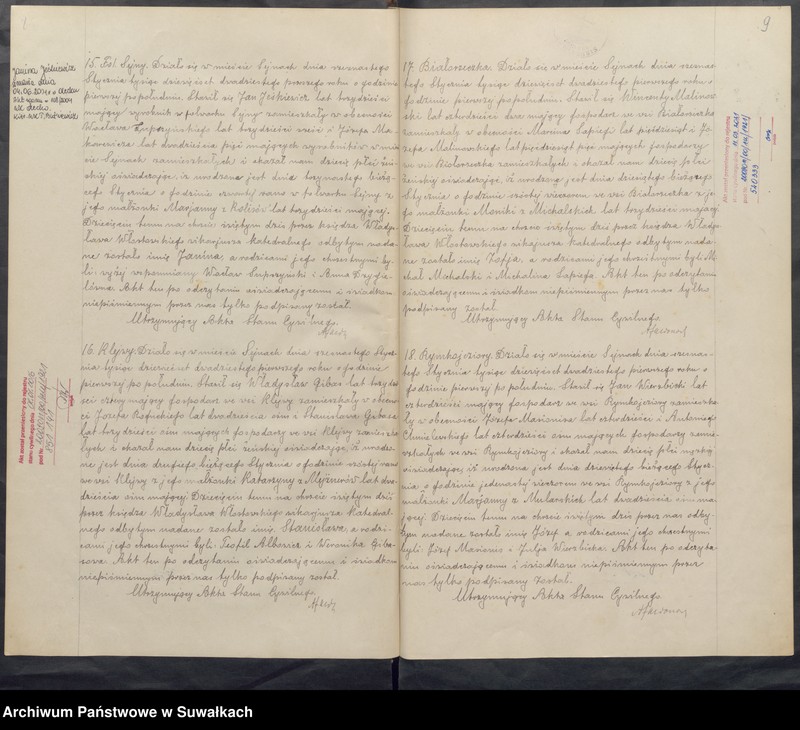 9
15. Fol. Sejny. Działo się w mieście Sejnach dnia szesnastego
Stycznia tysiąc dziewięćset dwudziestego pierwszego roku o godzinie
pierwszej po południu. Stawił się Jan lat trzydzieści
mający wyrobnik w folwarku Sejny zamieszkały w obecności
Wacława lat trzydzieści sześć i Józefa
lat dwadzieścia pięć mających wyrobników w mie
ście Sejnach zamieszkałych i okazał nam dziecię płci żeń
skiej oświadczając, iż urodzone jest dnia trzynastego bieżą
cego Stycznia o godzinie rano w folwarku Sejny z
jego małżonki Marjanny z lat trzydzieści mającej.
Dziecięciu temu na chrzcie świętym dziś przez księdza Włady
sława Włostowskiego wikarjusza Katedralnego odbytym nada
ne zostało imię Janina, a rodzicami jego chrzestnymi by
li: wyżej wspomniany Wacław i Anna
Akt ten po odczytaniu oświadczającemu i świadkom
niepiśmiennym przez nas tylko podpisany został.
Utrzymujący Akta Stanu Cywilnego.
16. Klejwy. Działo się w mieście Sejnach dnia szesnastego Stycz
nia tysiąc dziewięćset dwudziestego pierwszego roku o godzinie
pierwszej po południu. Stawił się Władysław Gibas lat trzydzie
ści cztery mający gospodarz we wsi Klejwy zamieszkały w obecno
ści Józefa lat dwadzieścia osm i Stanisława Gibasa
lat trzydzieści osm mających gospodarzy we wsi Klejwy zamieszka
łych i okazał nam dziecię płci żeńskiej oświadczając, iż urodzo
ne jest dnia drugiego bieżącego Stycznia o godzinie szóstej rano
we wsi Klejwy z jego małżonki Katarzyny z lat dwa
dzieścia osm mającej. Dziecięciu temu na chrzcie świętym dziś
przez księdza Władysława Włostowskiego wikarjusza Katedral
nego odbytym nadane zostało imię Stanisława a rodzi
cami jego chrzestnymi byli: Teofil i Weronika Giba
sowa. Akt ten po odczytaniu oświadczającemu i świadkom
niepiśmiennym przez nas tylko podpisany został.
Utrzymujący Akta Stanu Cywilnego.
17. Białorzeczka. Działo się w mieście Sejnach dnia szesnas
tego Stycznia tysiąc dziewięćset dwudziestego pierwszego roku o
godzinie pierwszej po południu. Stawił się Wincenty Malinow
ski lat czterdzieści dwa mający gospodarz we wsi Białorzeczka
zamieszkały w obecności Marcina Łapiega lat pięćdziesiąt i Jó
zefa Malinowskiego lat pięćdziesiąt pięć mających gospodarzy
we wsi Białorzeczka zamieszkałych i okazał nam dziecię płci
żeńskiej oświadczając, iż urodzone jest dnia dziesiątego bieżącego
Stycznia o godzinie szóstej wieczorem we wsi Białorzeczka z je
go małżonki Moniki z Michalskich lat trzydzieści mającej.
Dziecięciu temu na chrzcie świętym dziś przez księdza Włady
sława Włostowskiego wikarjusza Katedralnego odbytym nada
ne zostało imię Zofja, a rodzicami jego chrzestnymi byli: Mi
chał Michalski i Michalina Łapiega. Akt ten po odczytaniu
oświadczającemu i świadkom niepiśmiennym przez nas tylko
podpisany został.
Utrzymujący Akta Stanu Cywilnego
18. Rymkojeziory. Działo się w mieście Sejnach dnia szesnas
tego Stycznia tysiąc dziewięćset dwudziestego pierwszego roku o
godzinie pierwszej po południu. Stawił się Jan Wierzbicki lat
czterdzieści mający gospodarz we wsi Rymkojeziory zamieszka
ły w obecności Józefa lat czterdzieści i Antoniego
Chmielewskiego lat czterdzieści osm mających gospodarzy zamie
szkałych we wsi Rymkojeziory i okazał nam dziecię płci męskiej
oświadczając, iż urodzone jest dnia dziesiątego bieżącego Stycz
nia o godzinie jedenastej wieczorem we wsi Rymkojeziory z jego
małżonki Marjanny z Mularskich lat dwadzieścia osm ma
jącej. Dziecięciu temu na chrzcie świętym dziś przez nas odby
tym nadane zostało imię Józef a rodzicami jego chrzestnymi
byli: Józef i Julja Wierzbicka. Akt ten po odczyta
niu oświadczającemu i świadkom niepiśmiennym przez
nas tylko podpisany został.
Utrzymujący Akta Stanu Cywilnego
Archiwum Państwowe w Suwałkach